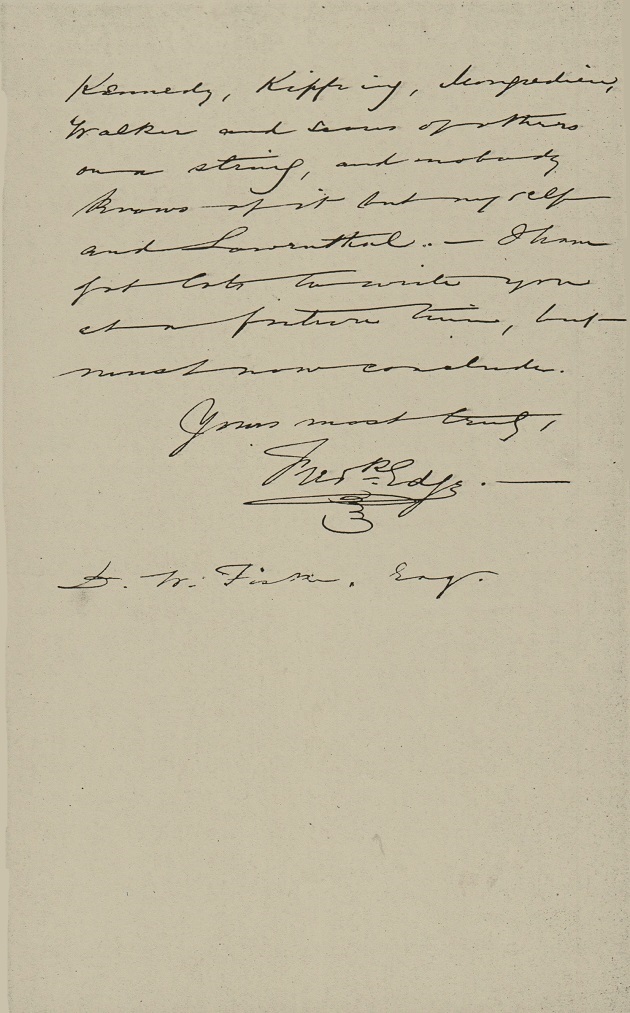 Kennedy, Kipping, Mongredien,
Walker and scores of others
on a string, and nobody
knows of it but myself
and Lowenthal. — I have
got lots to write you
at a future time, but
must now conclude.
Yours most truly,
Fredk Edge. —
D. W. Fiske, Esq.